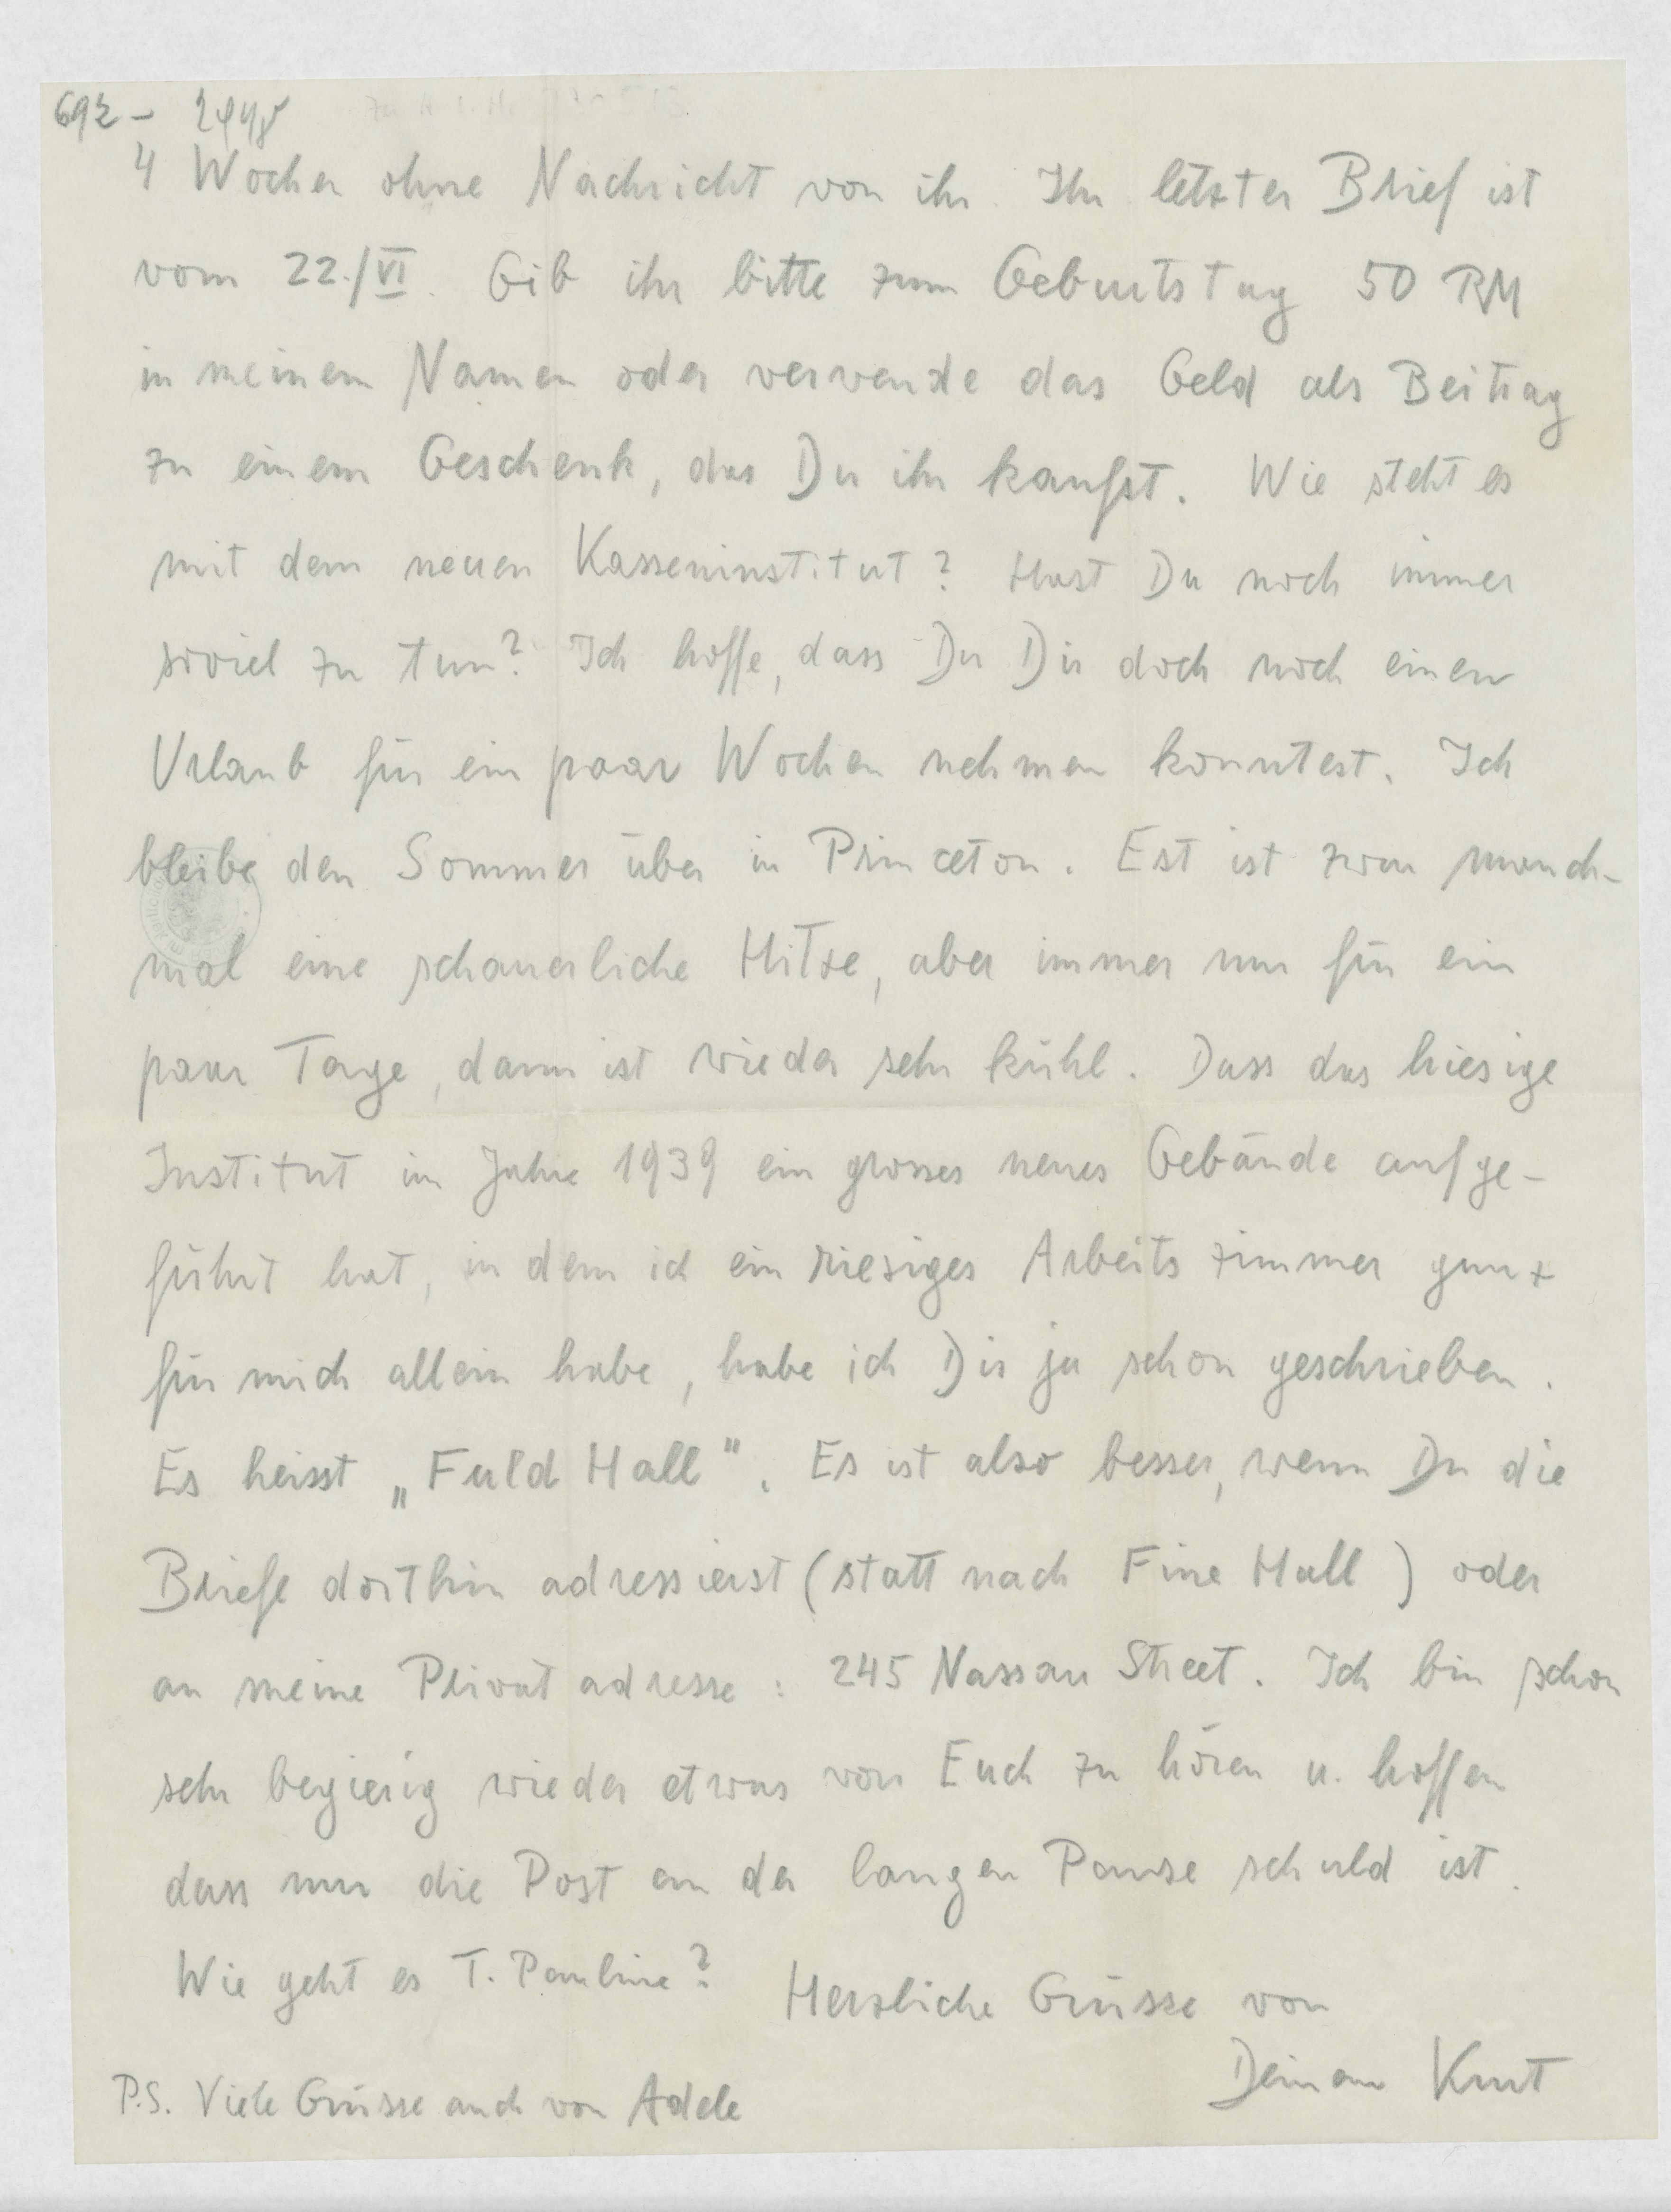 692 –
4 Wochen ohne Nachricht von ihr. Ihr letzter Brief ist
vom 22./VI. Gib ihr bitte zum Geburtstag 50 RM
in meinem Namen oder verwende das Geld als Beitrag
zu einem Geschenk, das Du ihr kaufst. Wie steht es
mit dem neuen Kasseninstitut? Hast Du noch immer
soviel zu tun? Ich hoffe, dass Du Dir doch noch einen
Urlaub für ein paar Wochen nehmen konntest. Ich
bleibe den Sommer über in Princeton. Est ist zwar manch-
mal eine schauerliche Hitze, aber immer nur für ein
paar Tage, dann ist wieder sehr kühl. Dass das hiesige
Institut im Jahre 1939 ein grosses neues Gebäude aufge-
führt hat, in dem ich ein riesiges Arbeitszimmer ganz
für mich allein habe, habe ich Dir ja schon geschrieben.
Es heisst „Fuld Hall". Es ist also besser, wenn Du die
Briefe dorthin adressierst (statt nach Fine Hall) oder
an meine Privatadresse: 245 Nassau Street. Ich bin schon
sehr begierig wieder etwas von Euch zu hören u. hoffen
dass nur die Post an der langen Pause schuld ist.
Wie geht es T. Pauline? Herzliche Grüsse von
Deinem Kurt
P.S. Viele Grüsse auch von Adele